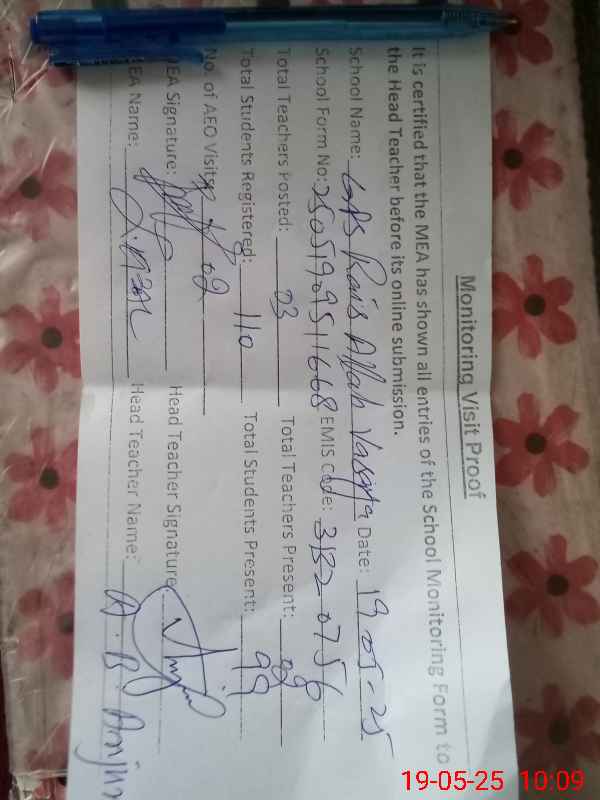 Monitoring Visit Proof
It is certified that the MEA has shown all entries of the School Monitoring Form to
the Head Teacher before its online submission.
School Name: GPS Rais Allah Vasaya Date: 19-05-25
School Form No: 25051909511668 EMIS Code: 31320756
Total Teachers Posted: 03 Total Teachers Present:
Total Students Registered: 110 Total Students Present: 99
No. of AEO Visits: 02
EA Signature: Head Teacher Signature
EA Name: Head Teacher Name: A.B Anjum
19-05-25 10:09